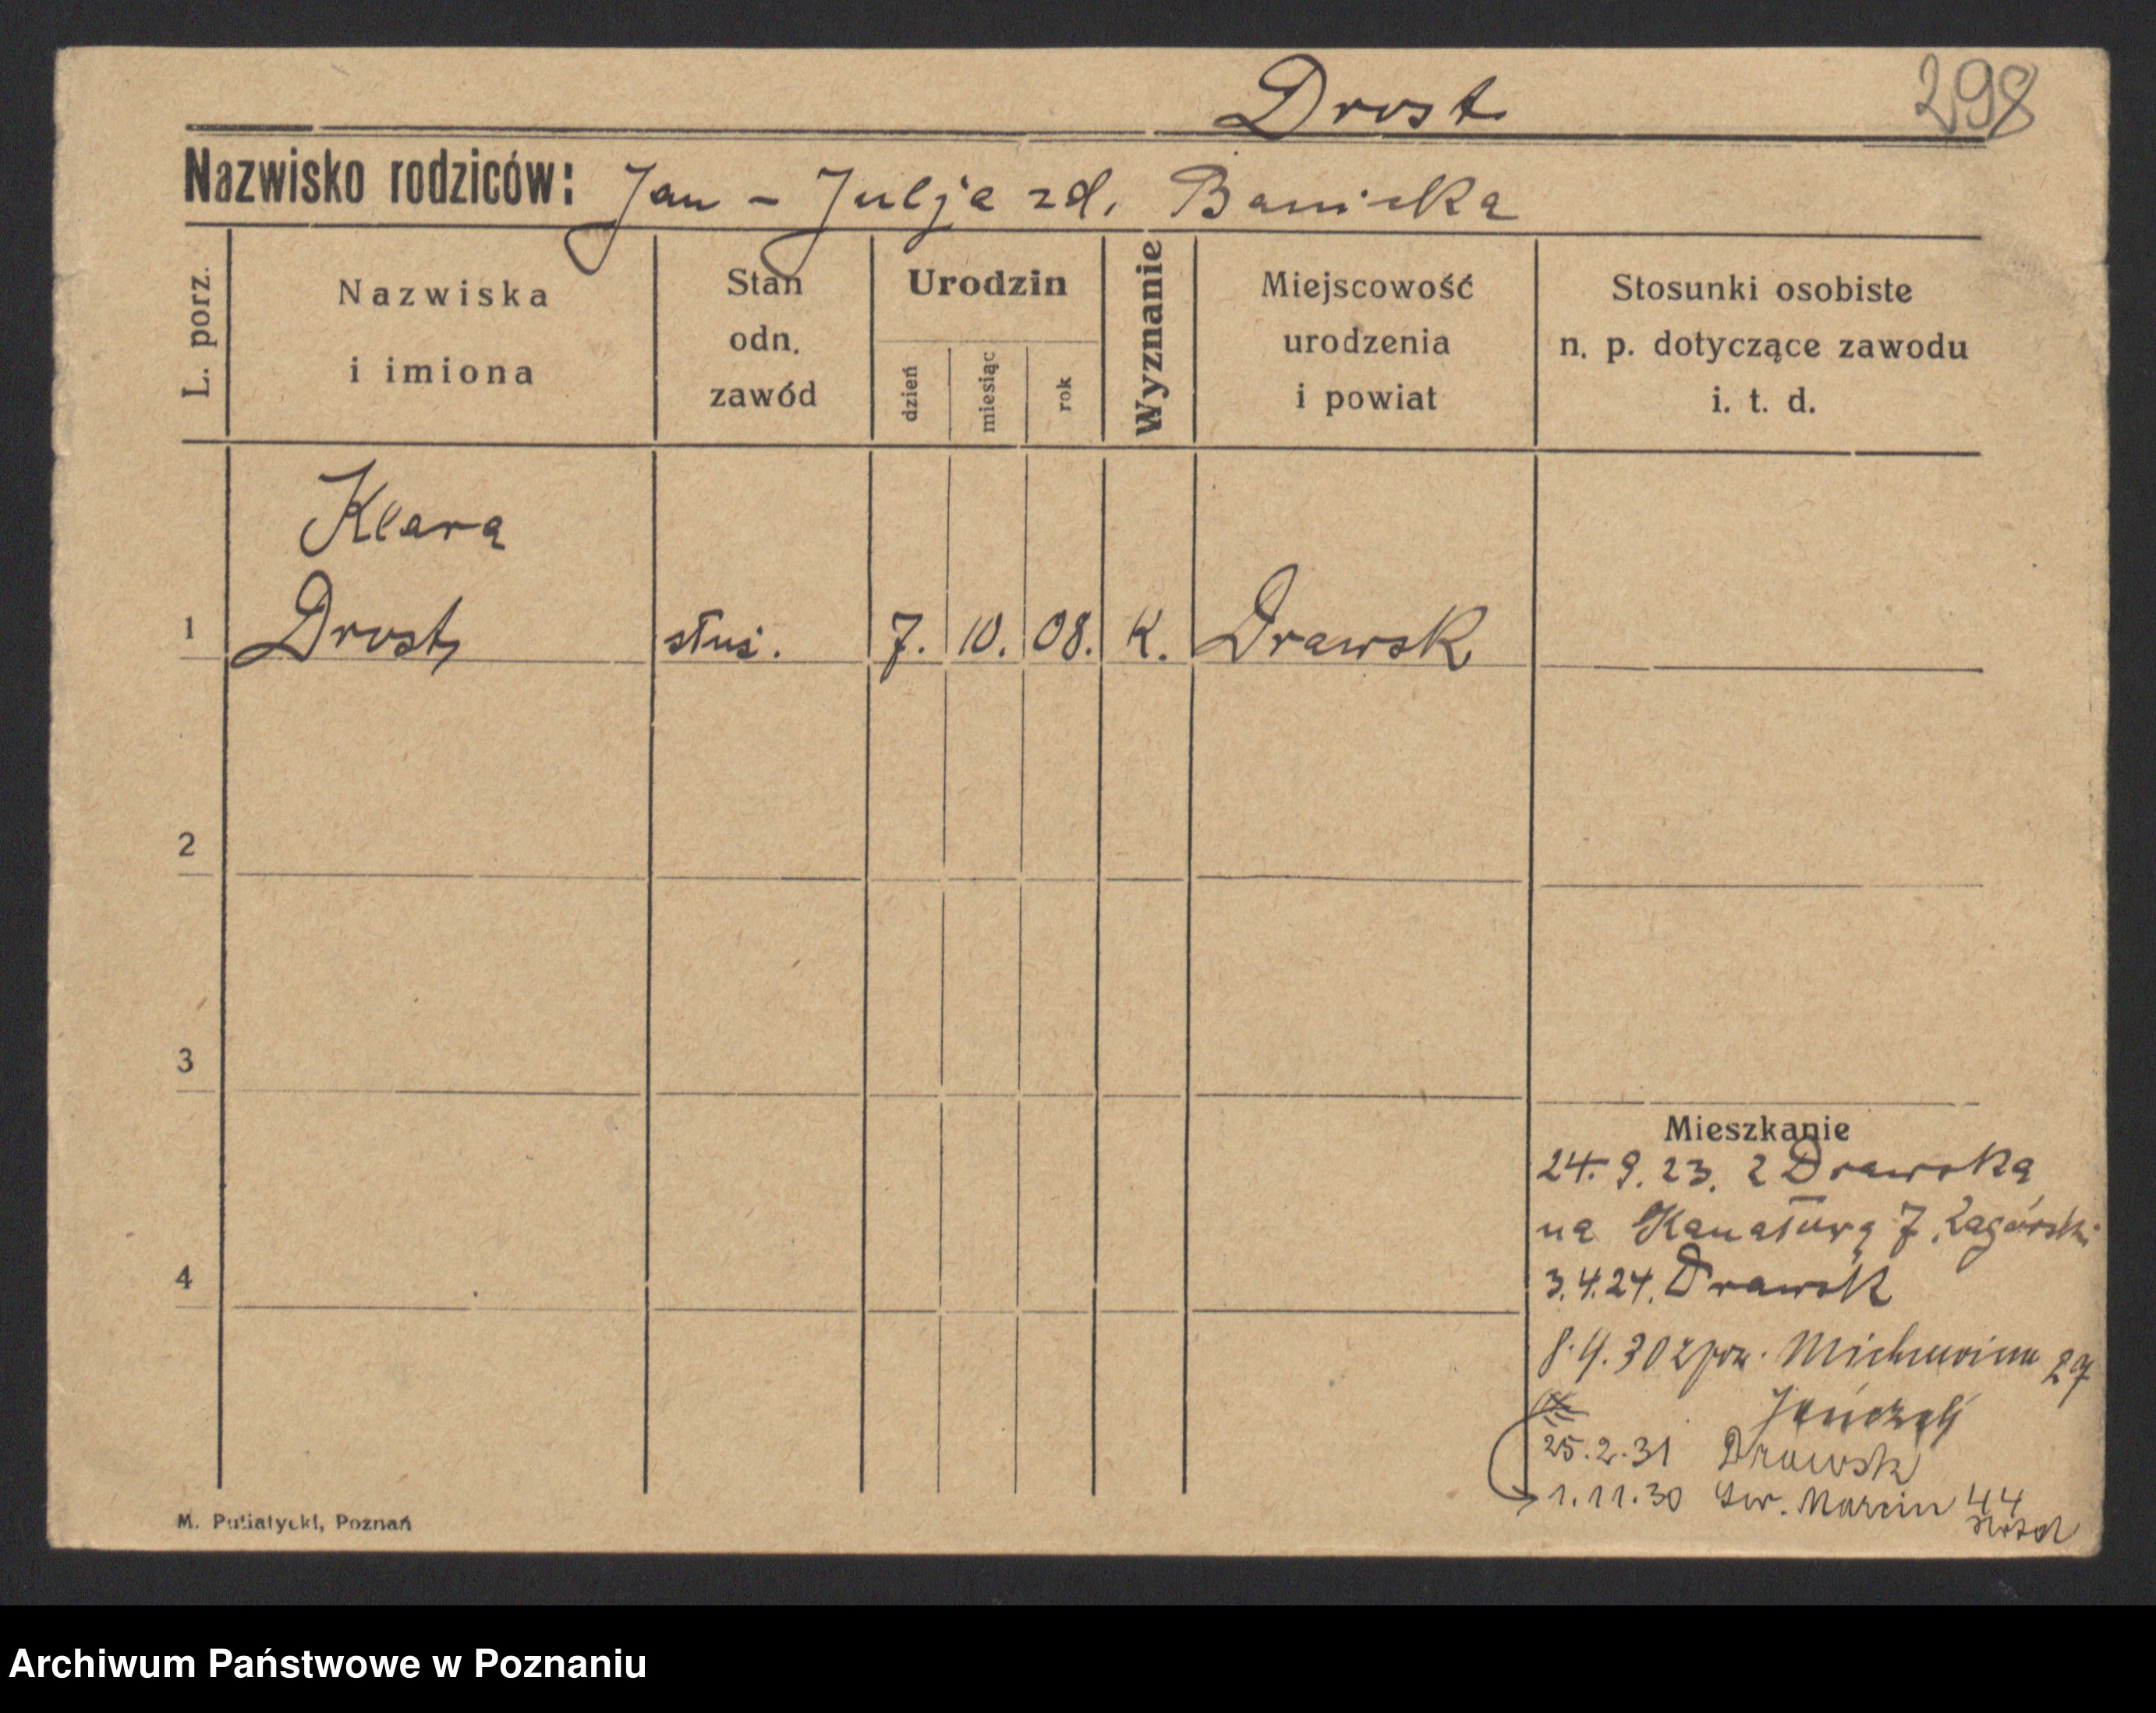 Drost
298
Nazwisko rodziców: Jan - Julja zd. Banicka
L. porz.
Nazwiska
i imiona
Stan
odn.
zawód
Urodzin
dzień
miesiąc
rok
Wyznanie
Miejscowość
urodzenia
i powiat
Stosunki osobiste
n. p. dotyczące zawodu
i. t. d.
Klara
1 Drost, służ. 7. 10. 08. K. Drawsk
2
3
Mieszkanie
24. 9. 23. z Drawska
na Kanałową 7. Zagórski
4
3.4.24. Drawsk
8.4.30 z poz. 27
25.2.31 Drawsk
1.11.30 Św. Marcin 44
M. Putiatycki, Poznań
Archiwum Państwowe w Poznaniu